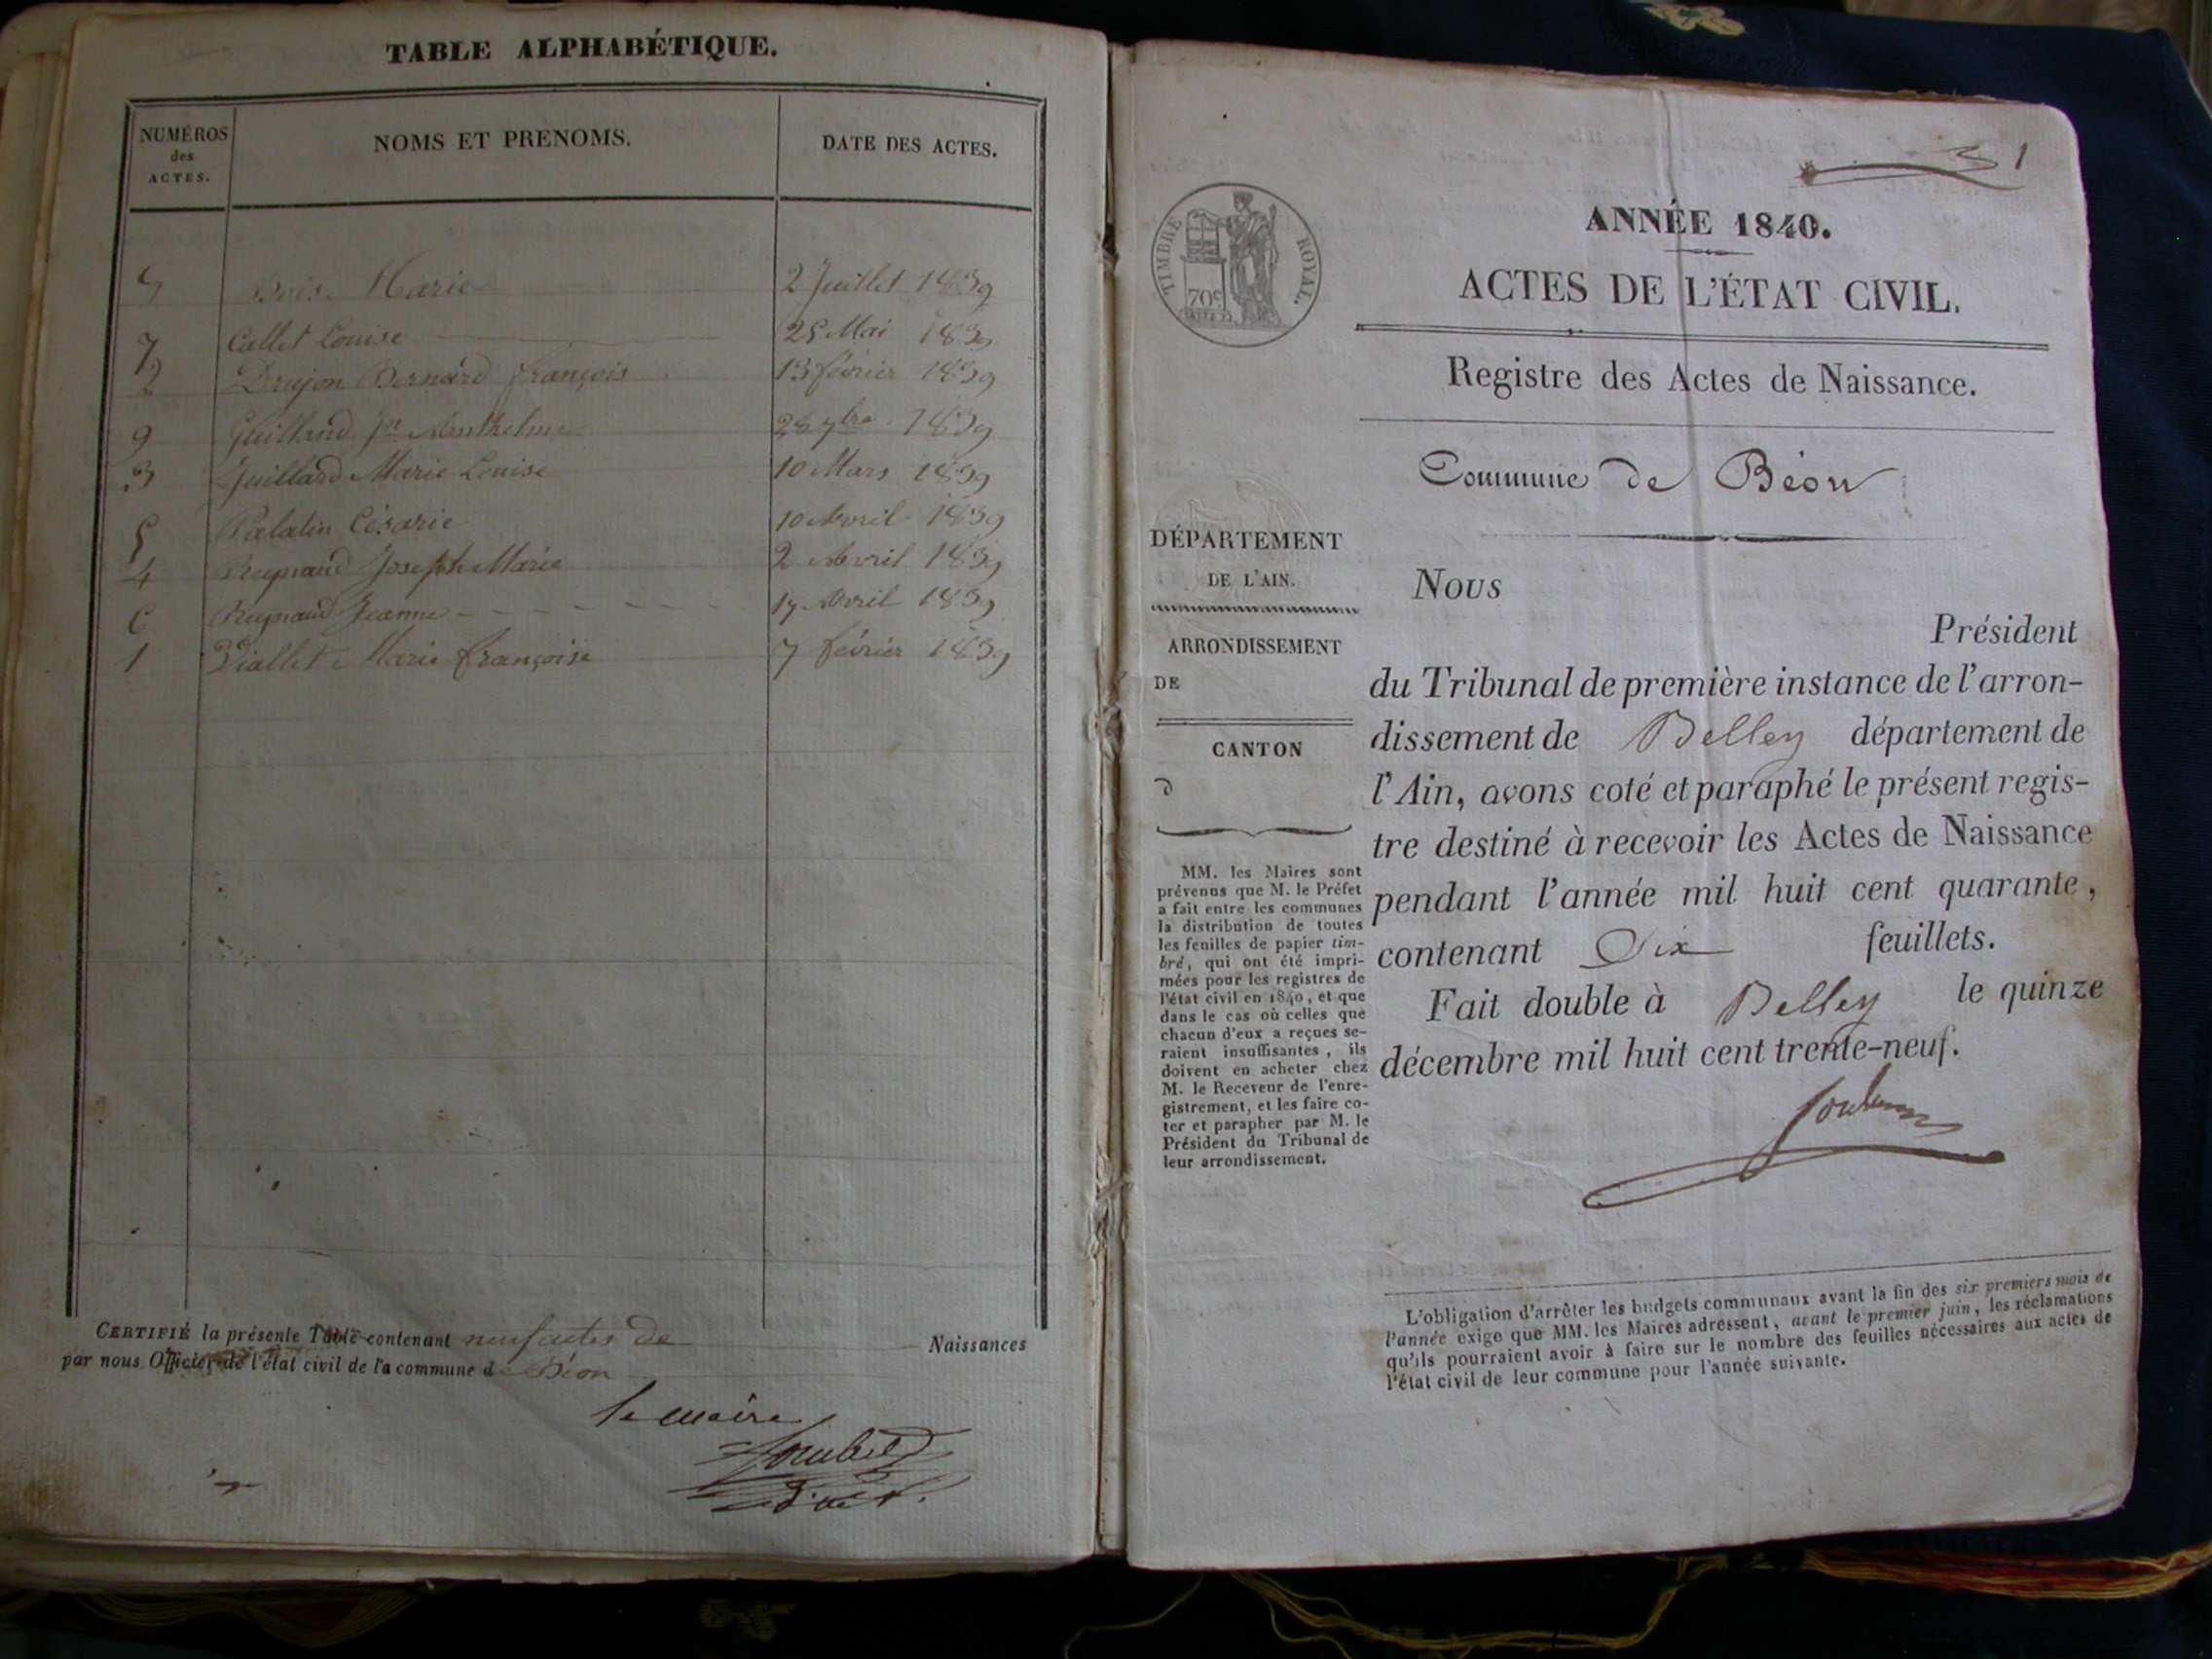 TABLE ALPHABÉTIQUE.
NUMÉROS
des
ACTES.
NOMS ET PRENOMS.
DATE DES ACTES.
Bois Marie 2 Juillet 1839
7 Callet Louise 25 Mai 1839
2 Drujon Bernard François 13 février 1839
9 Guilland 28 9bre 1839
3 Guilland Marie Louise 10 Mars 1839
5 Palatin Césarie 10 Avril 1839
4 Reynaud Joseph Marie 2 Avril 1839
6 Reynaud Jeanne 1839
1 Viallet Marie Françoise 7 février 1839
CERTIFIÉ la présente Table contenant neuf actes de Naissances
par nous Officier de l'état civil de la commune de Béon
le maire
1
TIMBRE ROYAL.
70c
ANNÉE 1840.
ACTES DE L'ÉTAT CIVIL.
Registre des Actes de Naissance.
Commune de Béon
DÉPARTEMENT
DE L'AIN.
ARRONDISSEMENT
DE
CANTON
d
MM. les Maires sont
prévenus que M. le Préfet
a fait entre les communes
la distribution de toutes
les feuilles de papier tim-
bré, qui ont été impri-
mées pour les registres de
l'état civil en 1840, et que
dans le cas où celles que
chacun d'eux a reçues se-
raient insuffisantes, ils
doivent en acheter chez
M. le Receveur de l'enre-
gistrement, et les faire co-
ter et parapher par M. le
Président du Tribunal de
leur arrondissement.
Nous
Président
du Tribunal de première instance de l'arron-
dissement de Belley département de
l'Ain, avons coté et paraphé le présent regis-
tre destiné à recevoir les Actes de Naissance
pendant l'année mil huit cent quarante,
contenant Six feuillets.
Fait double à Belley le quinze
décembre mil huit cent trente-neuf.
L'obligation d'arrêter les budgets communaux avant la fin des six premiers mois de
l'année exige que MM. les Maires adressent, avant le premier juin, les réclamations
qu'ils pourraient avoir à faire sur le nombre des feuilles nécessaires aux actes de
l'état civil de leur commune pour l'année suivante.